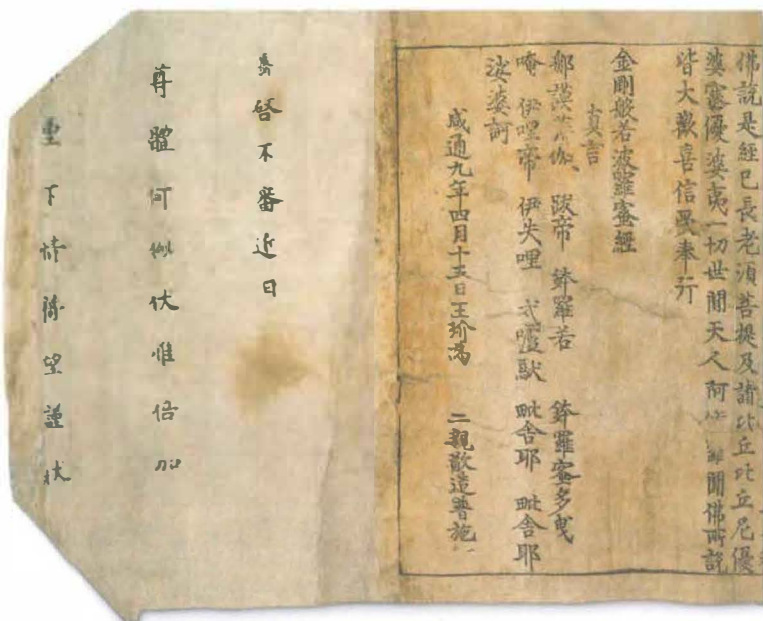 佛說是經已長老須菩提及諸比丘比丘尼優
婆塞優婆夷一切世間天人阿 羅聞佛所說
皆大歡喜信受奉行
金剛般若波羅蜜經
真言
那謨 跋帝 鉢羅若 鉢羅蜜多曳
唵 伊哩帝 伊失哩 戍嚧馱 毗舍耶 毗舍耶
娑婆訶
咸通九年四月十五日王玠為 二親敬造普施
啓不審近日
尊體何似伏惟倍加
下情 望謹狀